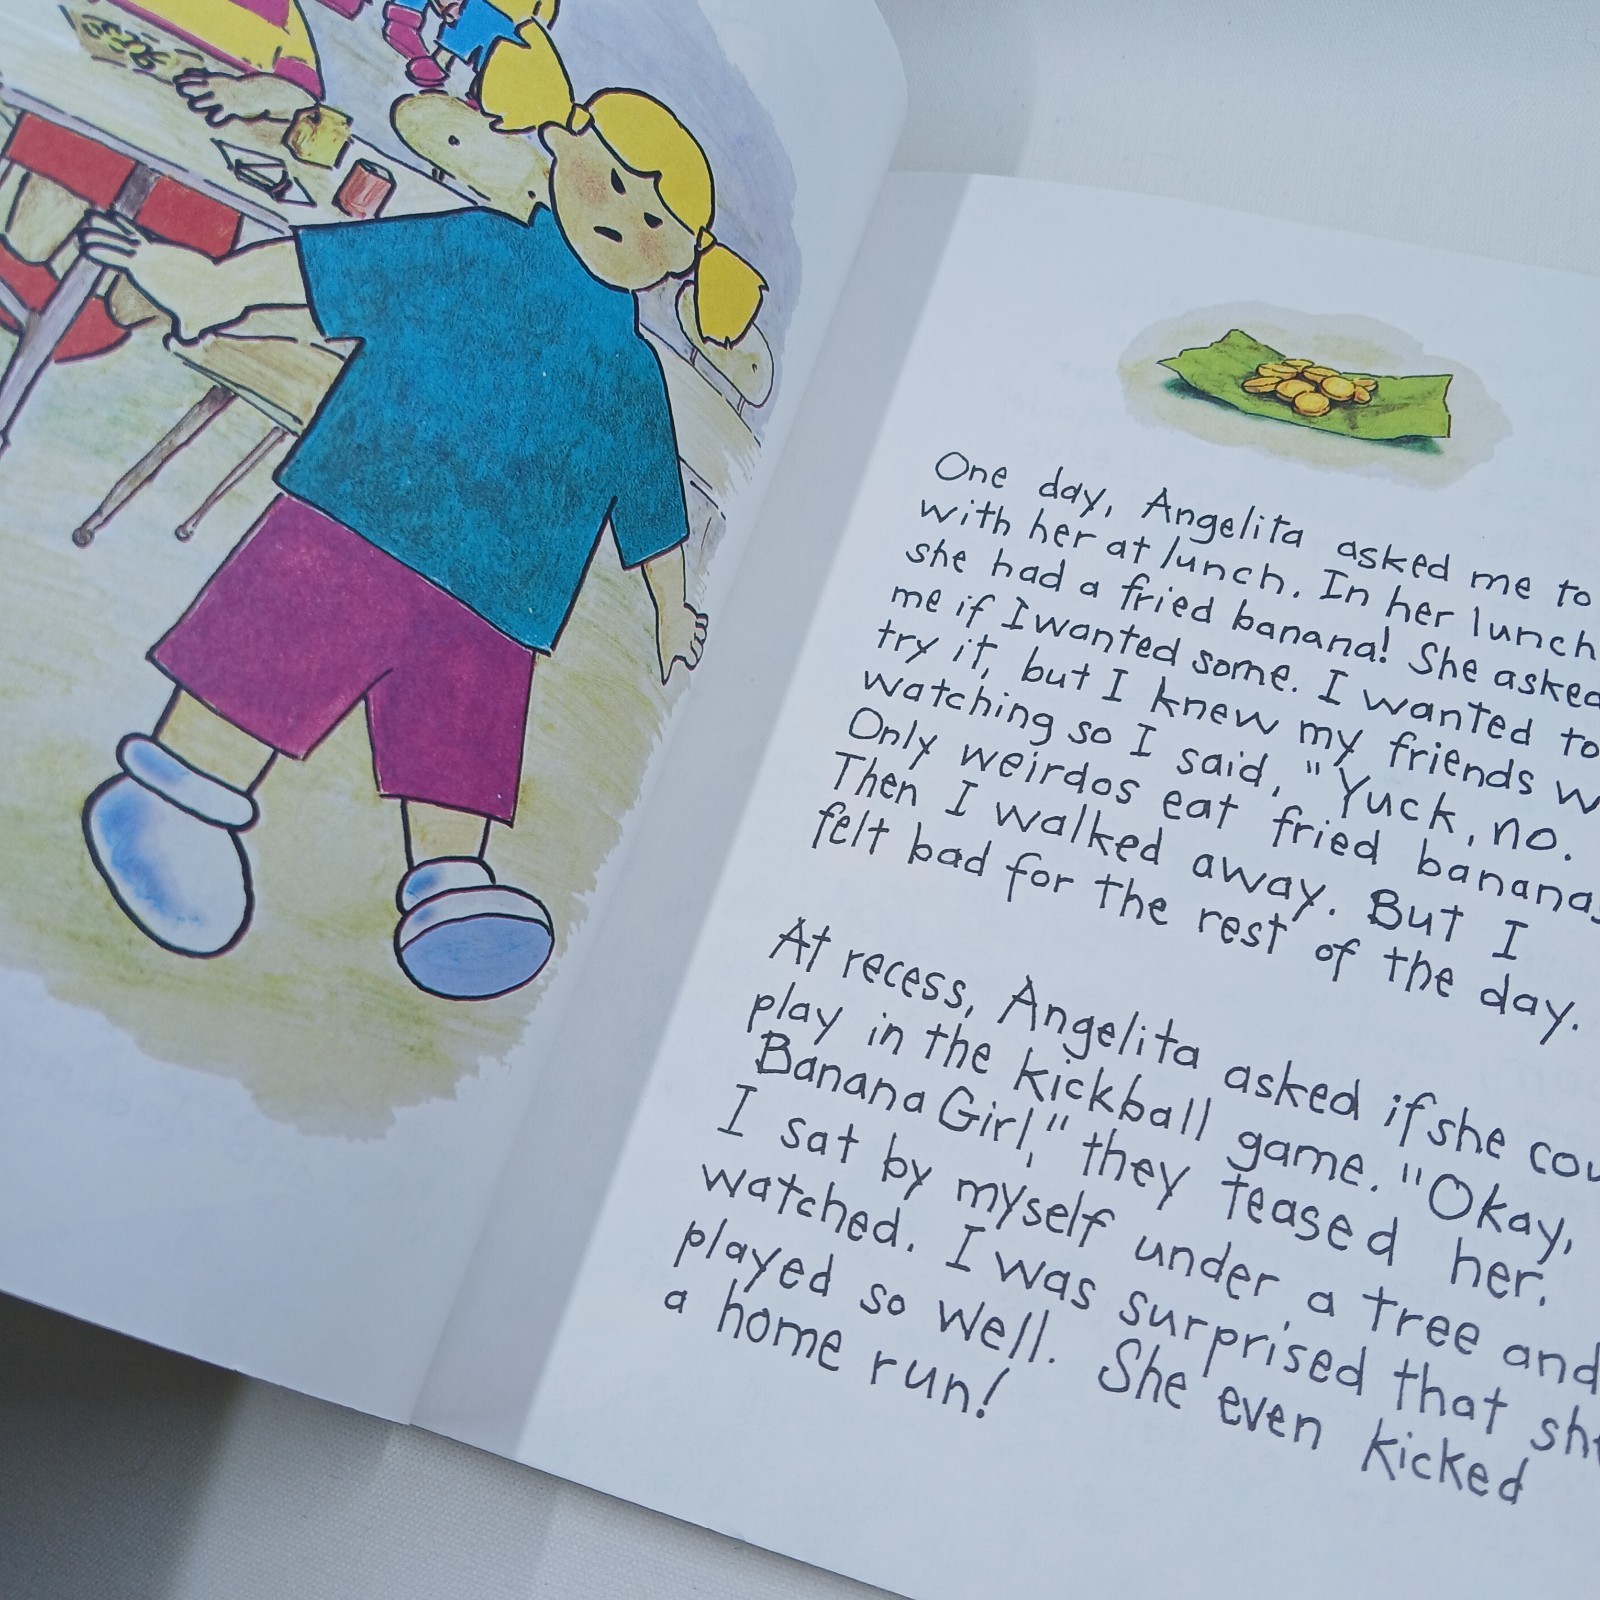 One day, Angelita asked me to
with her at lunch. In her lunch
she had a fried banana! She asked
me if I wanted some. I wanted to
try it, but I knew my friends
watching so I said, "Yuck, no.
Only weirdos eat fried bananas
Then I walked away. But I
felt bad for the rest of the day.
At recess, Angelita asked if she
play in the kickball game. "Okay,
Banana Girl," they teased her.
I sat by myself under a tree and
watched. I was surprised that she
played so well. She even kicked
a home run!